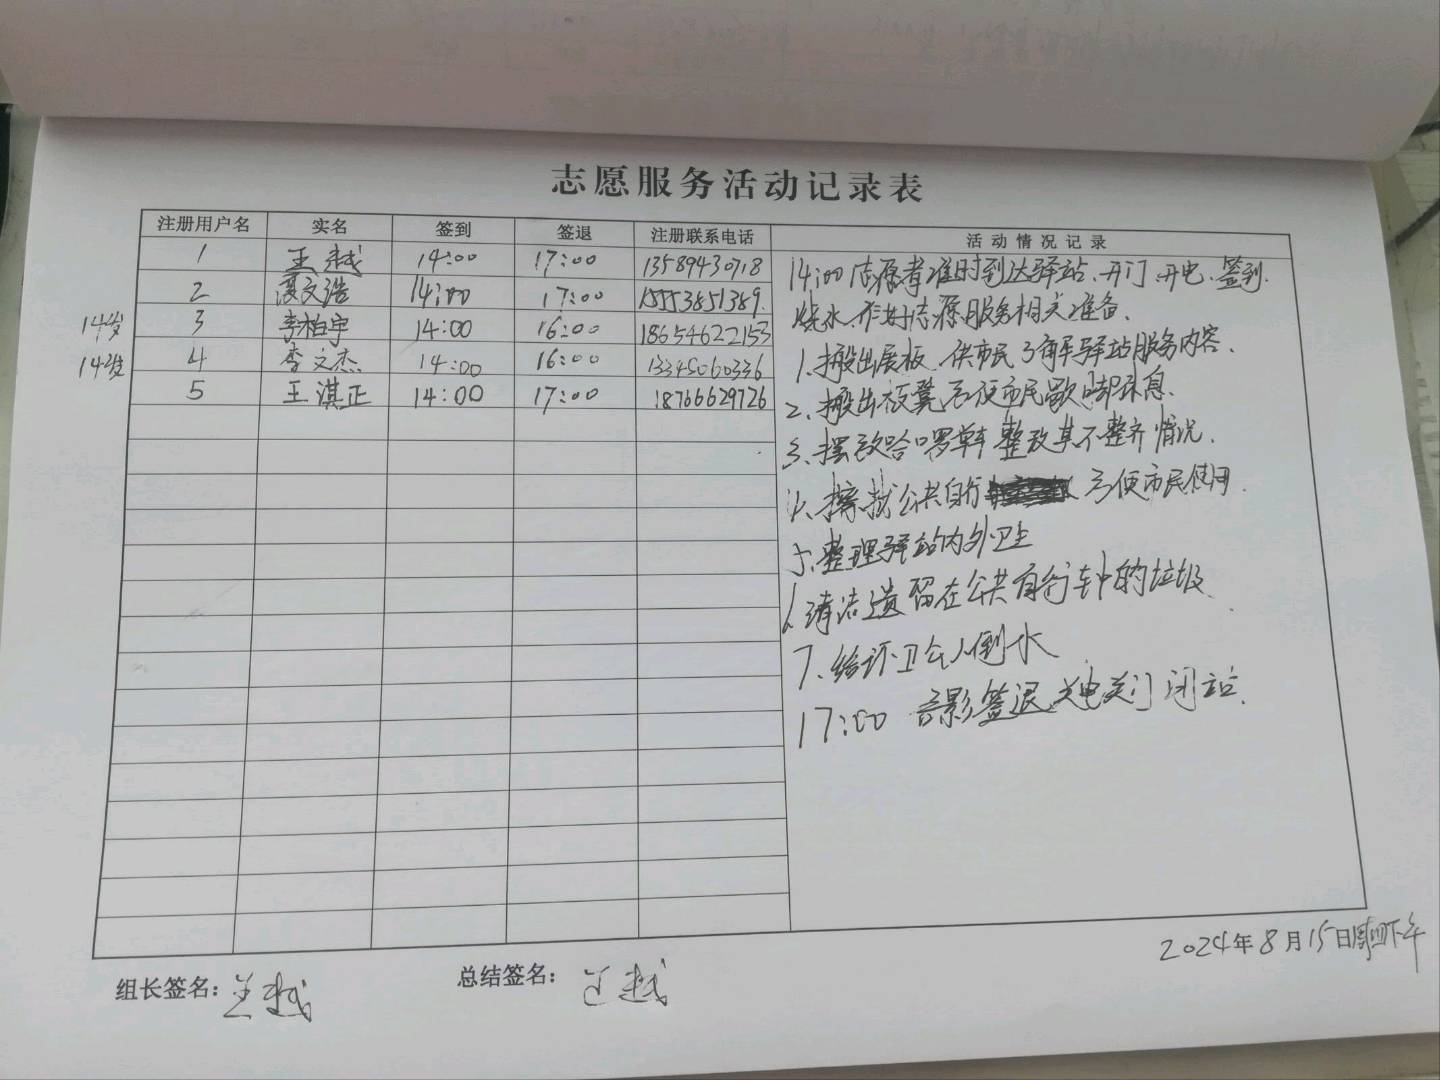 志愿服务活动记录表
注册用户名 实名 签到 签退 注册联系电话 活动情况记录
1 王越 14:00 17:00 13589430718
2 文浩 14:00 17:00 15553851389
14岁 3 李柏宇 14:00 16:00 18654622153
14岁 4 李文杰 14:00 16:00 13345060336
5 王淇正 14:00 17:00 18766629726
14:00 志愿者准时到达驿站、开门、开电、签到、
烧水、作好志愿服务相关准备.
1、搬出展板、供市民了解驿站服务内容.
2、搬出板凳方便市民歇脚休息.
3、摆放哈啰单车 整改其不整齐情况.
4、擦拭公共自行 方便市民使用.
5、整理驿站内外卫生
6、清洁遗留在公共自行车中的垃圾
7、给环卫工人倒水
17:00 合影签退、关电关门 闭站.
2024年8月15日周四下午
组长签名: 王越 总结签名: 王越